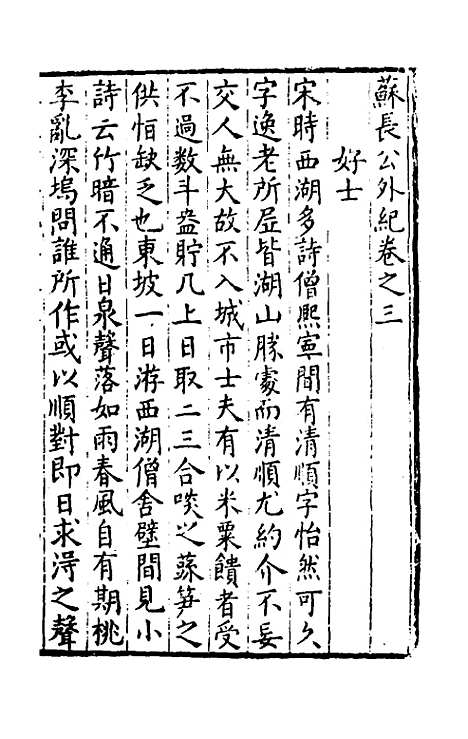 蘇長公外紀卷之三
好士
宋時西湖多詩僧熙寧間有清順字怡然可久
字逸老所居皆湖山勝處而清順尤約介不妄
交人無大故不入城市士夫有以米粟饋者受
不過数斗盎貯几上日取二三合啖之蔬笋之
供恒缺乏也東坡一日游西湖僧舍壁間見小
詩云竹暗不通日泉聲落如雨春風自有期桃
李亂深塢問誰所作或以順對即日求淂之聲